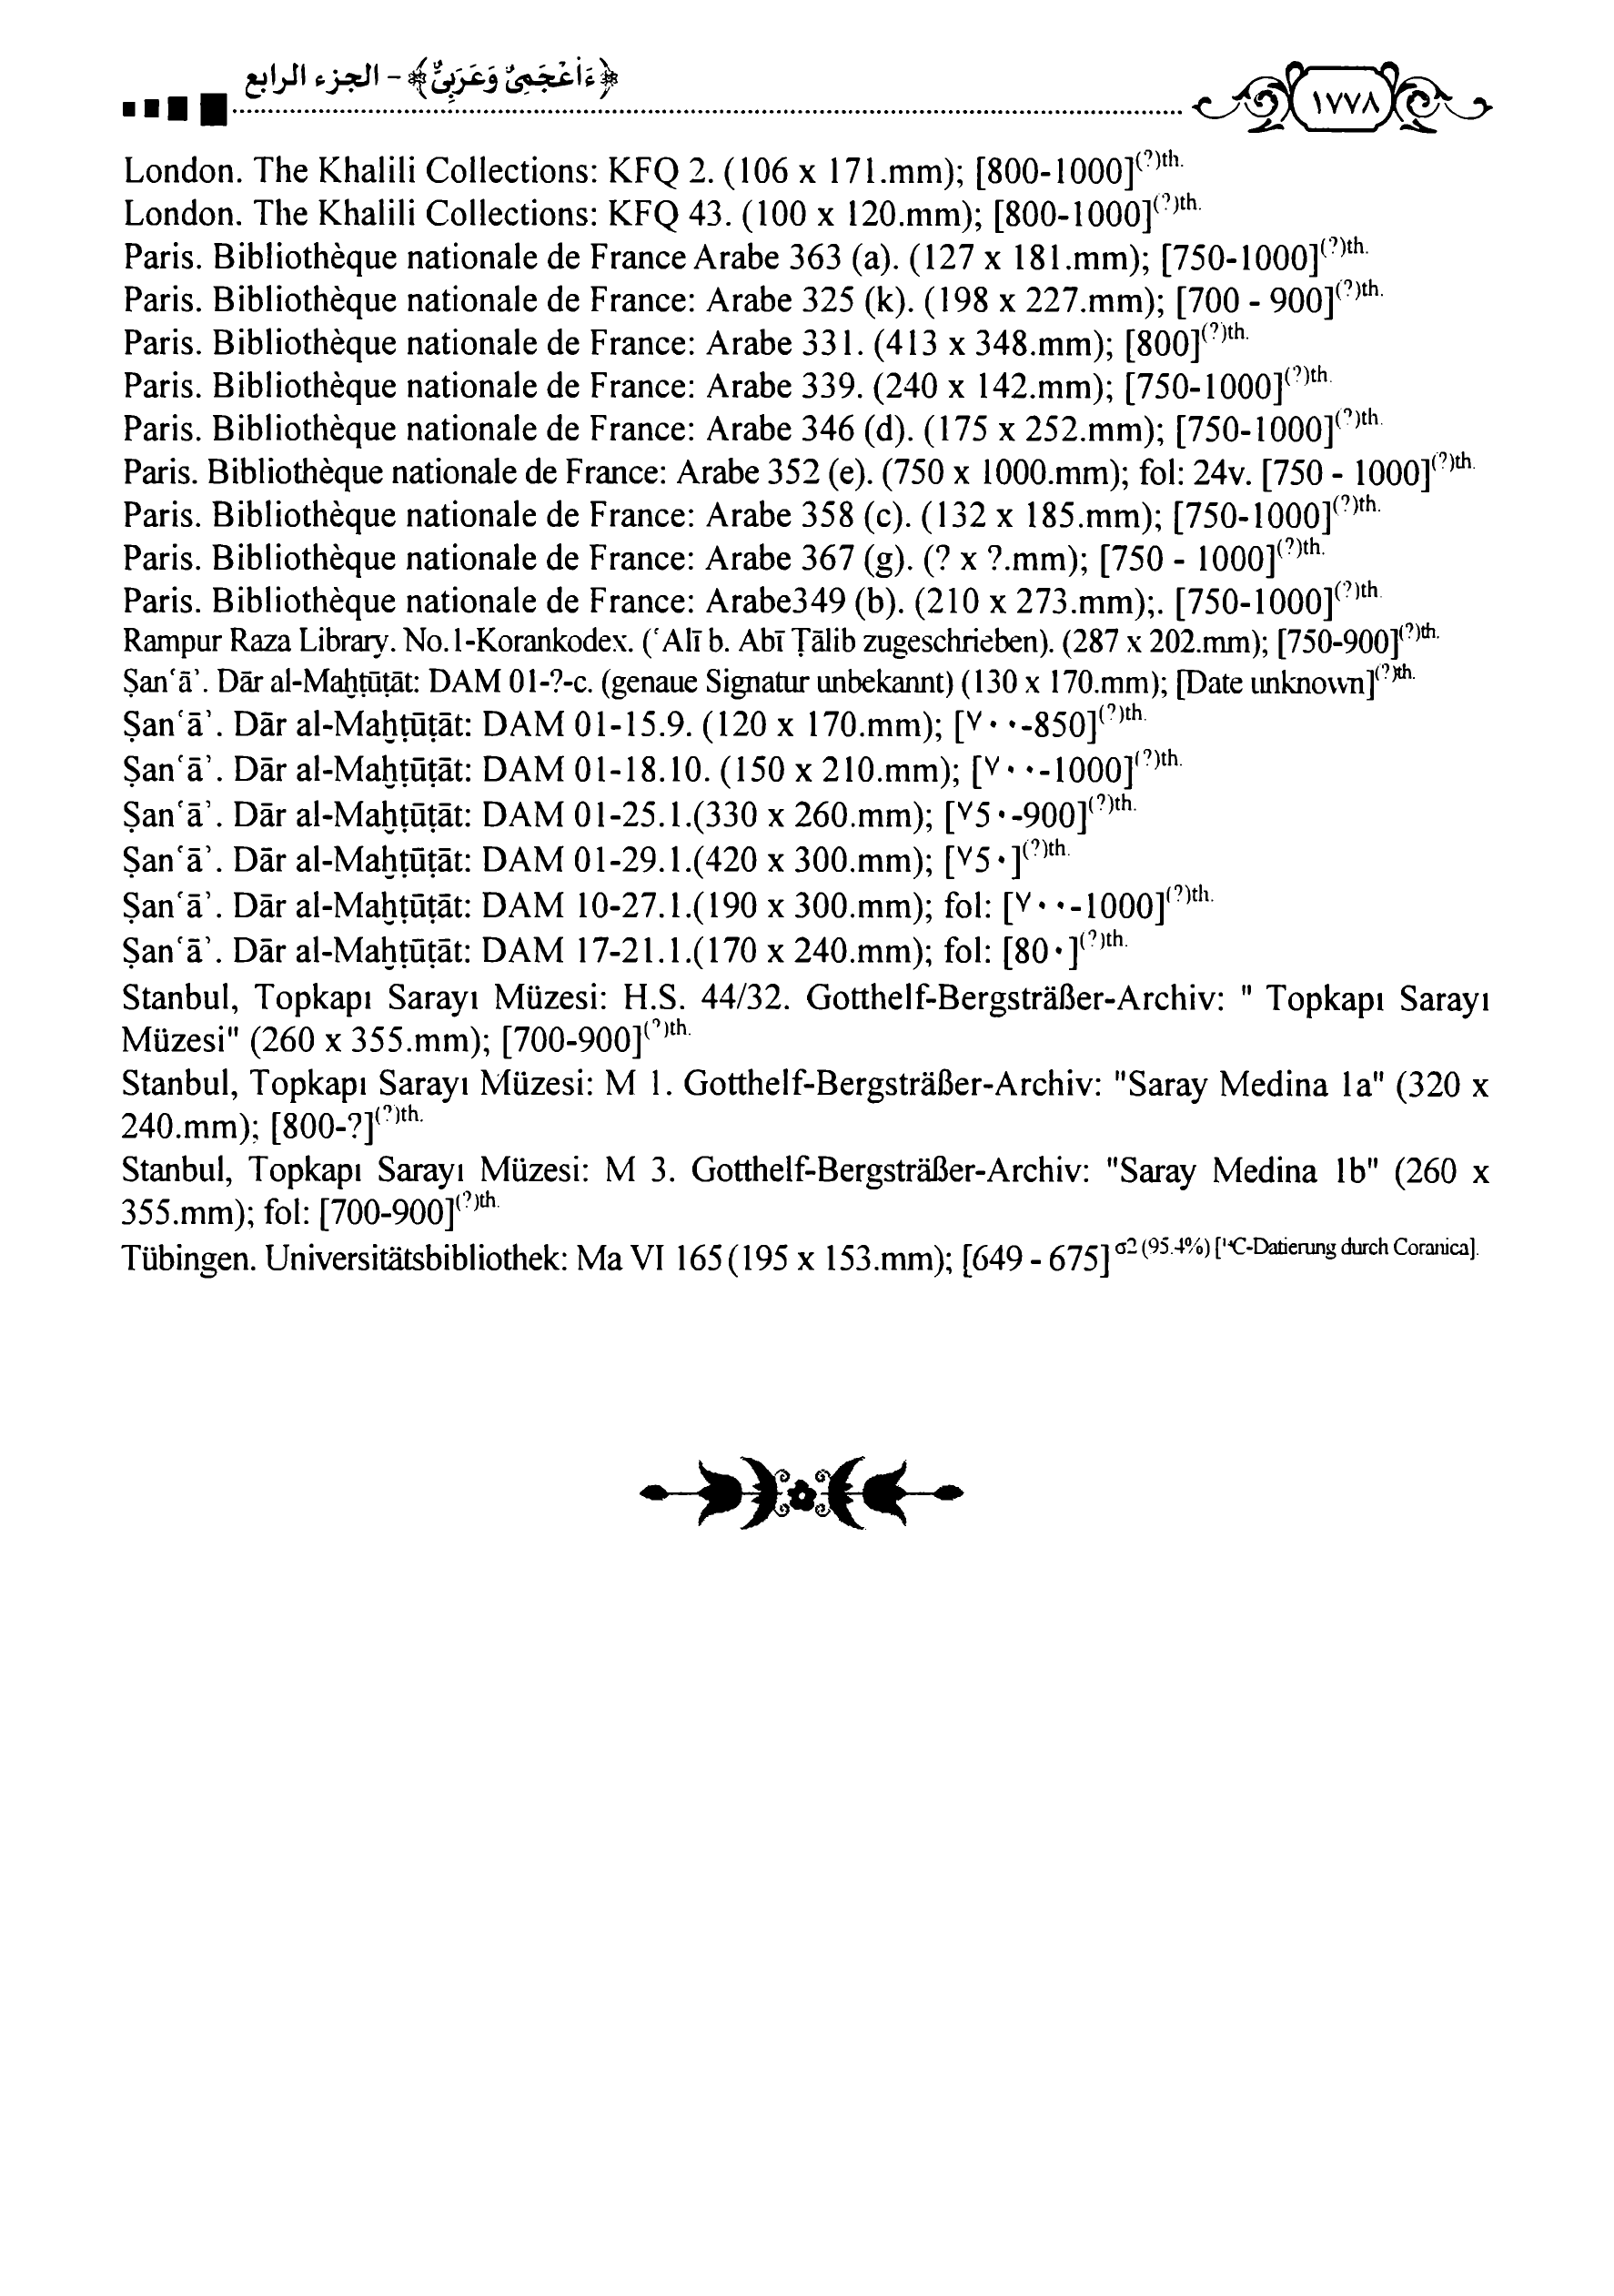 ﴿ءَاَعْجَمِىٌّ وَعَرَبِىٌّ﴾ - الجزء الرابع
١٧٧٨
London. The Khalili Collections: KFQ 2. (106 x 171.mm); [800-1000](?)th.
London. The Khalili Collections: KFQ 43. (100 x 120.mm); [800-1000](?)th.
Paris. Bibliothèque nationale de France Arabe 363 (a). (127 x 181.mm); [750-1000](?)th.
Paris. Bibliothèque nationale de France: Arabe 325 (k). (198 x 227.mm); [700 - 900](?)th.
Paris. Bibliothèque nationale de France: Arabe 331. (413 x 348.mm); [800](?)th.
Paris. Bibliothèque nationale de France: Arabe 339. (240 x 142.mm); [750-1000](?)th.
Paris. Bibliothèque nationale de France: Arabe 346 (d). (175 x 252.mm); [750-1000](?)th.
Paris. Bibliothèque nationale de France: Arabe 352 (e). (750 x 1000.mm); fol: 24v. [750 - 1000](?)th.
Paris. Bibliothèque nationale de France: Arabe 358 (c). (132 x 185.mm); [750-1000](?)th.
Paris. Bibliothèque nationale de France: Arabe 367 (g). (? x ?.mm); [750 - 1000](?)th.
Paris. Bibliothèque nationale de France: Arabe349 (b). (210 x 273.mm);. [750-1000](?)th.
Rampur Raza Library. No.1-Korankodex. (ʿAlī b. Abī Ṭālib zugeschrieben). (287 x 202.mm); [750-900](?)th.
Ṣanʿāʾ. Dār al-Maḫṭūṭāt: DAM 01-?-c. (genaue Signatur unbekannt) (130 x 170.mm); [Date unknown](?)th.
Ṣanʿāʾ. Dār al-Maḫṭūṭāt: DAM 01-15.9. (120 x 170.mm); [٧٠٠-850](?)th.
Ṣanʿāʾ. Dār al-Maḫṭūṭāt: DAM 01-18.10. (150 x 210.mm); [٧٠٠-1000](?)th.
Ṣanʿāʾ. Dār al-Maḫṭūṭāt: DAM 01-25.1.(330 x 260.mm); [٧5٠-900](?)th.
Ṣanʿāʾ. Dār al-Maḫṭūṭāt: DAM 01-29.1.(420 x 300.mm); [٧5٠](?)th.
Ṣanʿāʾ. Dār al-Maḫṭūṭāt: DAM 10-27.1.(190 x 300.mm); fol: [٧٠٠-1000](?)th.
Ṣanʿāʾ. Dār al-Maḫṭūṭāt: DAM 17-21.1.(170 x 240.mm); fol: [80٠](?)th.
Stanbul, Topkapı Sarayı Müzesi: H.S. 44/32. Gotthelf-Bergsträßer-Archiv: " Topkapı Sarayı
Müzesi" (260 x 355.mm); [700-900](?)th.
Stanbul, Topkapı Sarayı Müzesi: M 1. Gotthelf-Bergsträßer-Archiv: "Saray Medina 1a" (320 x
240.mm); [800-?](?)th.
Stanbul, Topkapı Sarayı Müzesi: M 3. Gotthelf-Bergsträßer-Archiv: "Saray Medina 1b" (260 x
355.mm); fol: [700-900](?)th.
Tübingen. Universitätsbibliothek: Ma VI 165 (195 x 153.mm); [649 - 675] σ2 (95.4%) [¹⁴C-Datierung durch Coranica].